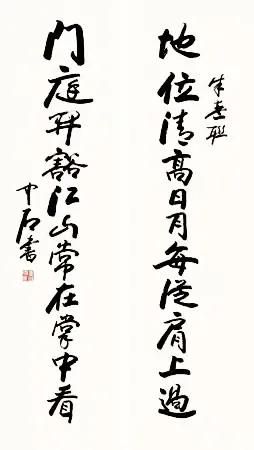 朱熹联
地位清高日月每從肩上過
门庭开豁江山常在掌中看
中石書